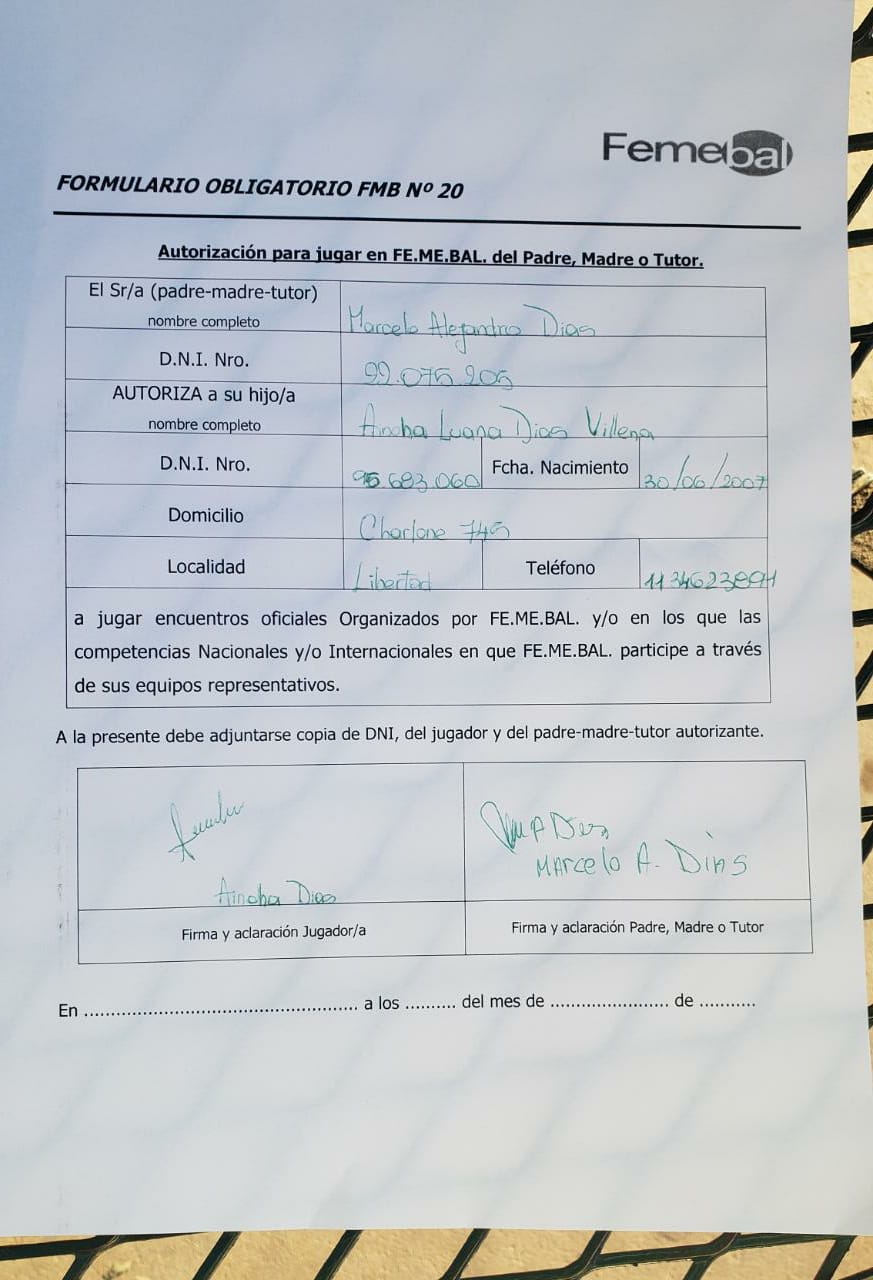 Femebal
FORMULARIO OBLIGATORIO FMB Nº 20
Autorización para jugar en FE.ME.BAL. del Padre, Madre o Tutor.
El Sr/a (padre-madre-tutor)
nombre completo
Marcelo Alejandro Dias
D.N.I. Nro.
99.075.205
AUTORIZA a su hijo/a
nombre completo
Ainoha Luana Dias Villena
D.N.I. Nro.
95.683.060
Fcha. Nacimiento
30/06/2007
Domicilio
Charlone 745
Localidad
Libertad
Teléfono
a jugar encuentros oficiales Organizados por FE.ME.BAL. y/o en los que las
competencias Nacionales y/o Internacionales en que FE.ME.BAL. participe a través
de sus equipos representativos.
A la presente debe adjuntarse copia de DNI, del jugador y del padre-madre-tutor autorizante.
Ainoha Dias
Marcelo A. Dias
Firma y aclaración Jugador/a
Firma y aclaración Padre, Madre o Tutor
En .................................................. a los ......... del mes de ...................... de ...........